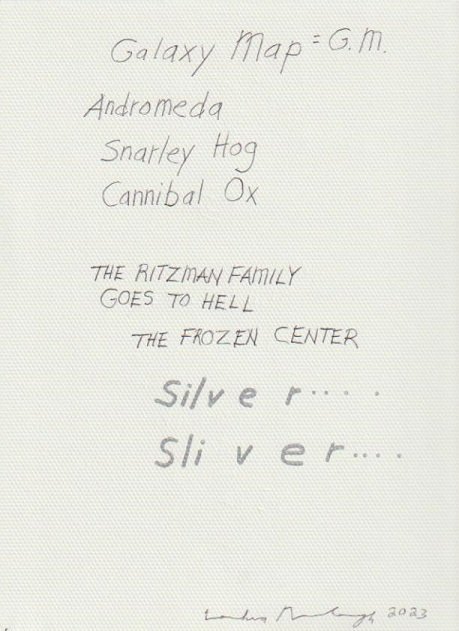 Galaxy Map = G.M.
Andromeda
Snarley Hog
Cannibal Ox
THE RITZMAN FAMILY
GOES TO HELL
THE FROZEN CENTER
Silver....
Sliver....
2023